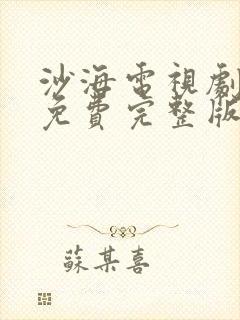 沙海電視劇
免費完整版
蘇某喜